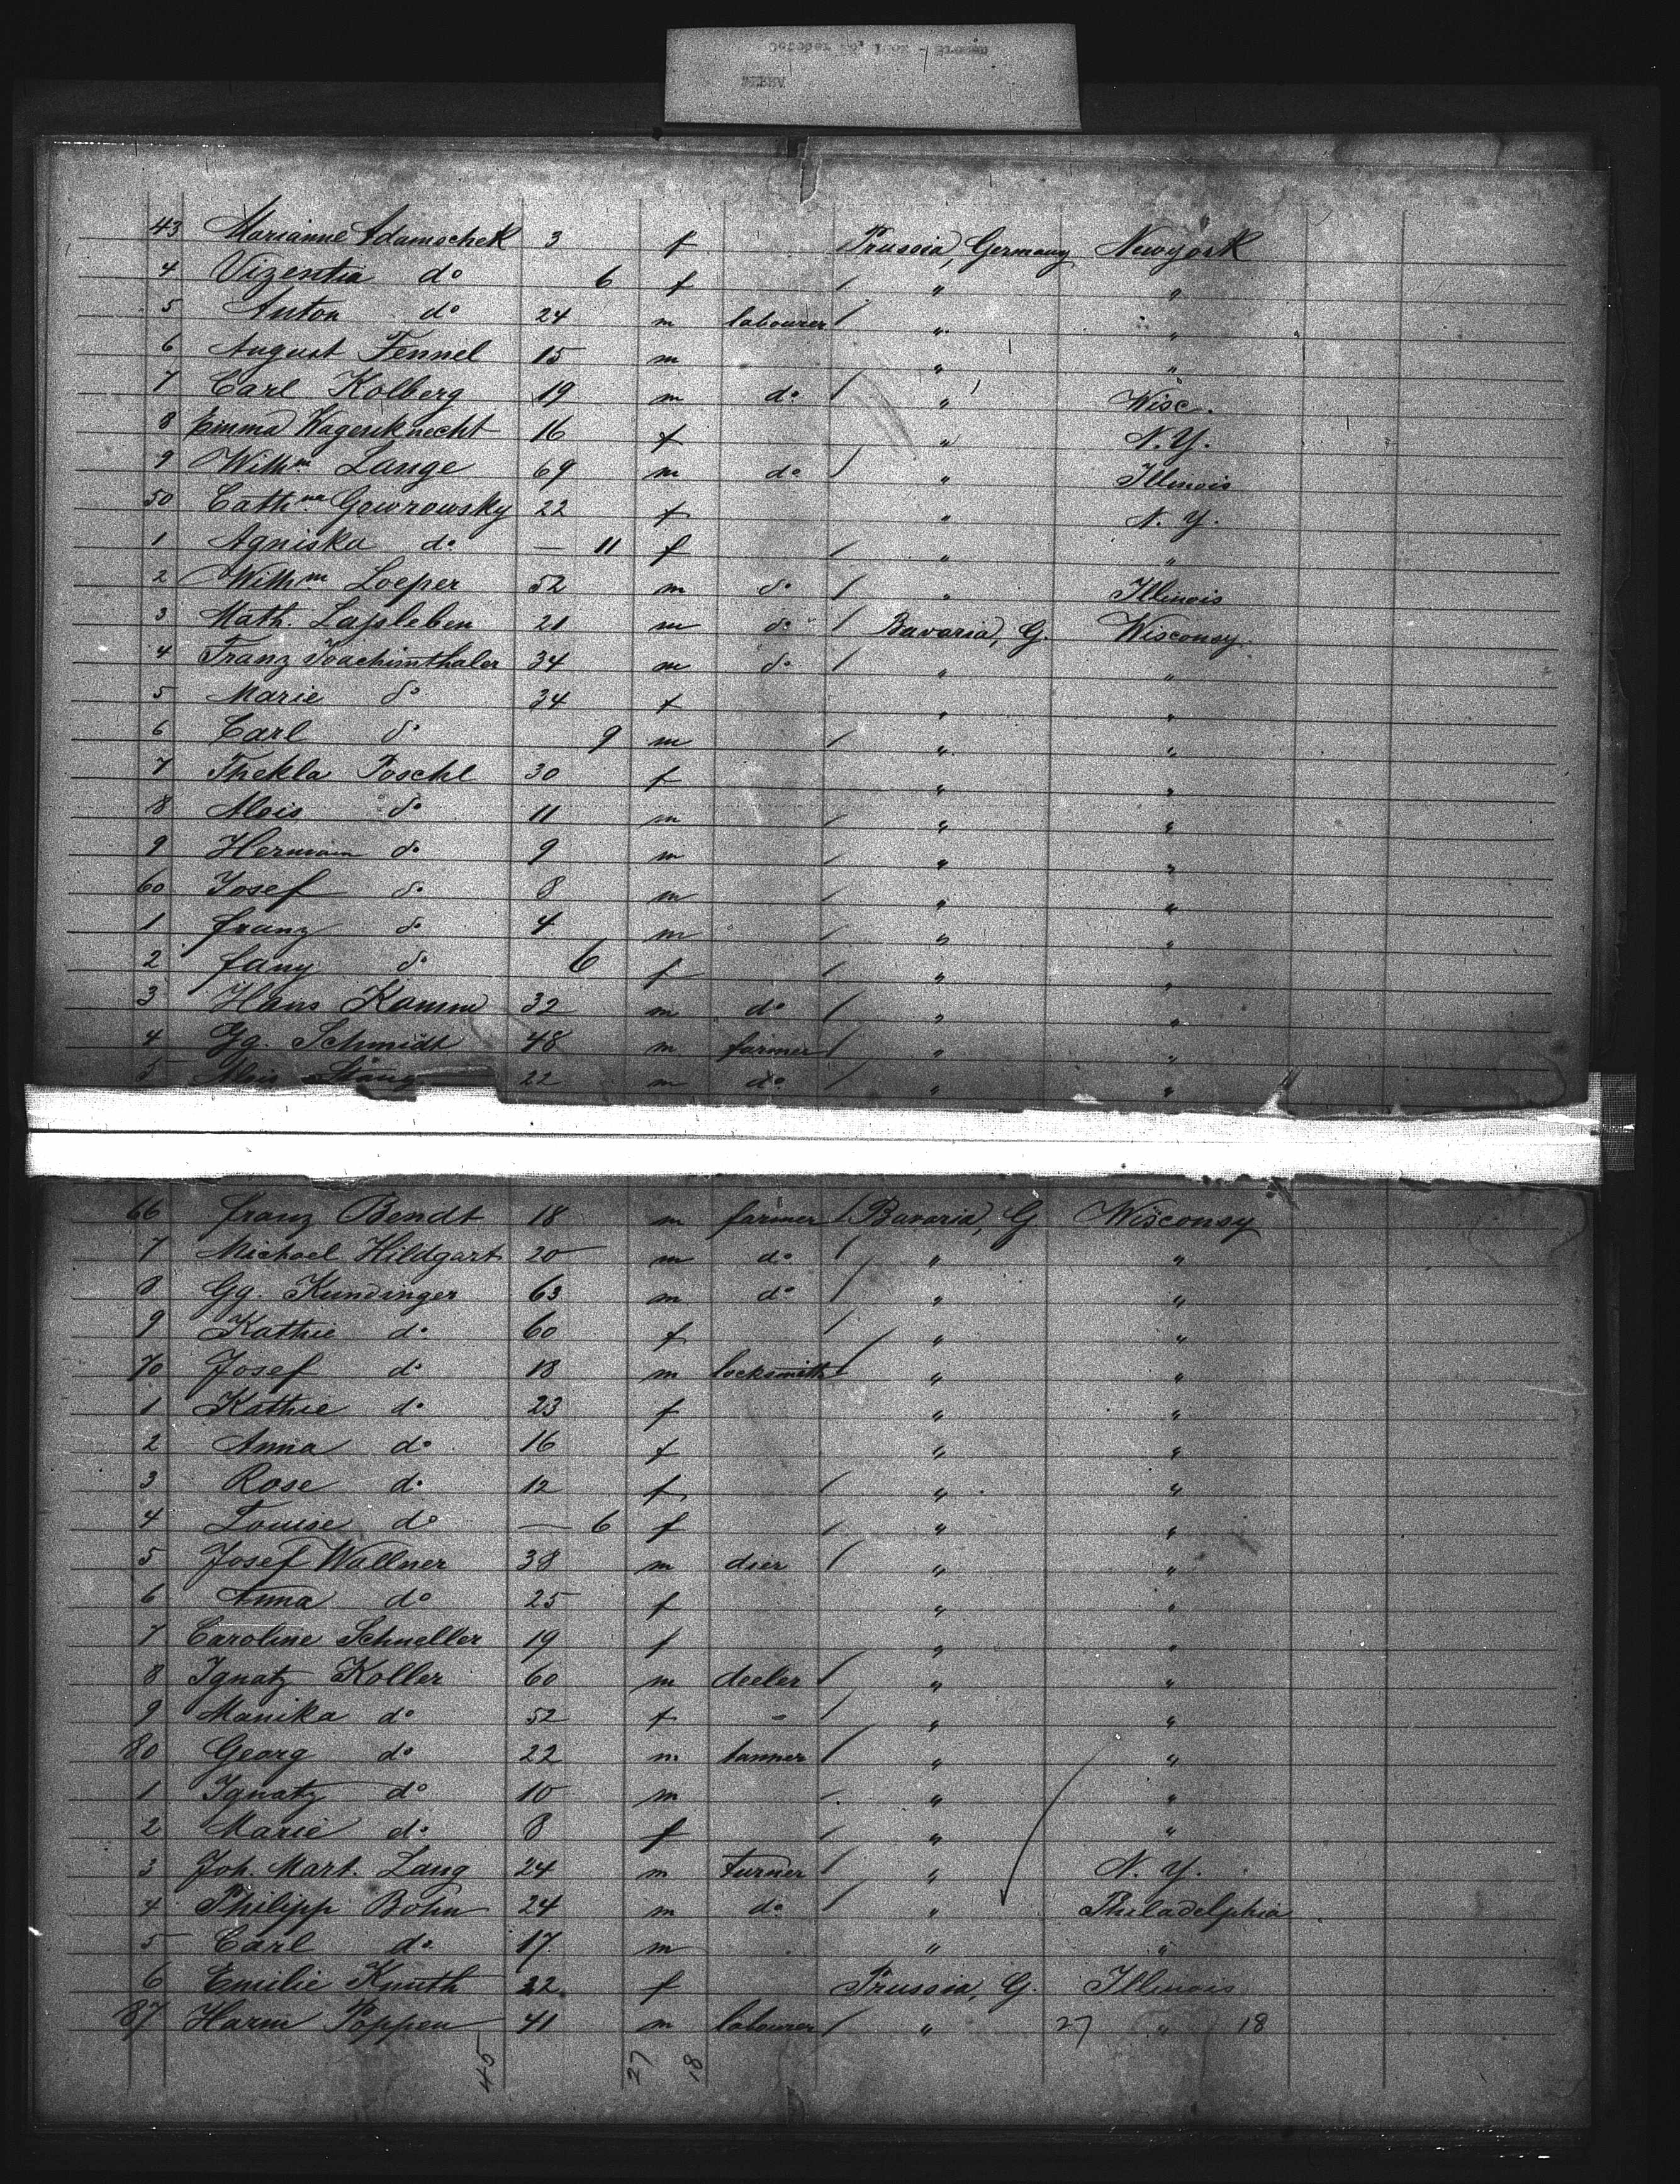 43 Marianne Adamschek 3 f Prussia, Germany Newyork
4 Vizentia do 6 f / " "
5 Anton do 24 m labourer / " "
6 August Fennel 15 m " "
7 Carl Kolberg 19 m do / " Wisc.
8 Emma Wagenknecht 16 f " N. Y.
9 Wilhm Lange 69 m do / " Illinois
50 Cathne Gowrowsky 22 f " N. Y.
1 Agniska do — 11 f / " "
2 Wilhm Loeper 52 m do / " Illinois
3 Math. Lassleben 21 m do / Bavaria, G. Wisconsy
4 Franz Joachimthaler 34 m do / " "
5 Marie do 34 f " "
6 Carl do 9 m / " "
7 Thekla Poschl 30 f " "
8 Alois do 11 m / " "
9 Hermann do 9 m / " "
60 Josef do 8 m / " "
1 franz do 4 m / " "
2 fany do 6 f / " "
3 Hans Kamm 32 m do / " "
4 Gg. Schmidt 48 m farmer / " "
5 22 m do / " "
66 franz Bendt 18 m farmer / Bavaria, G Wisconsy
7 Michael Hildgart 20 m do / " "
8 Gg. Kundinger 63 m do / " "
9 Kathie do 60 f / " "
70 Josef do 18 m locksmith / " "
1 Kathie do 23 f " "
2 Anna do 16 f " "
3 Rose do 12 f / " "
4 Louise do — 6 f / " "
5 Josef Wallner 38 m dier / " "
6 Anna do 25 f " "
7 Caroline Schneller 19 f " "
8 Ignatz Koller 60 m deeler / " "
9 Manika do 52 f - / " "
80 Georg do 22 m tanner / " "
1 Ignatz do 10 m / " "
2 Marie do 8 f / " "
3 Joh. Mart. Lang 24 m turner / " N. Y.
4 Philipp Bohn 24 m do / " Philadelphia
5 Carl do 17 m " "
6 Emilie Knuth 22 f Prussia, G. Illinois
87 Harm Poppen 41 m labourer / " 27 " 18
45 27 18